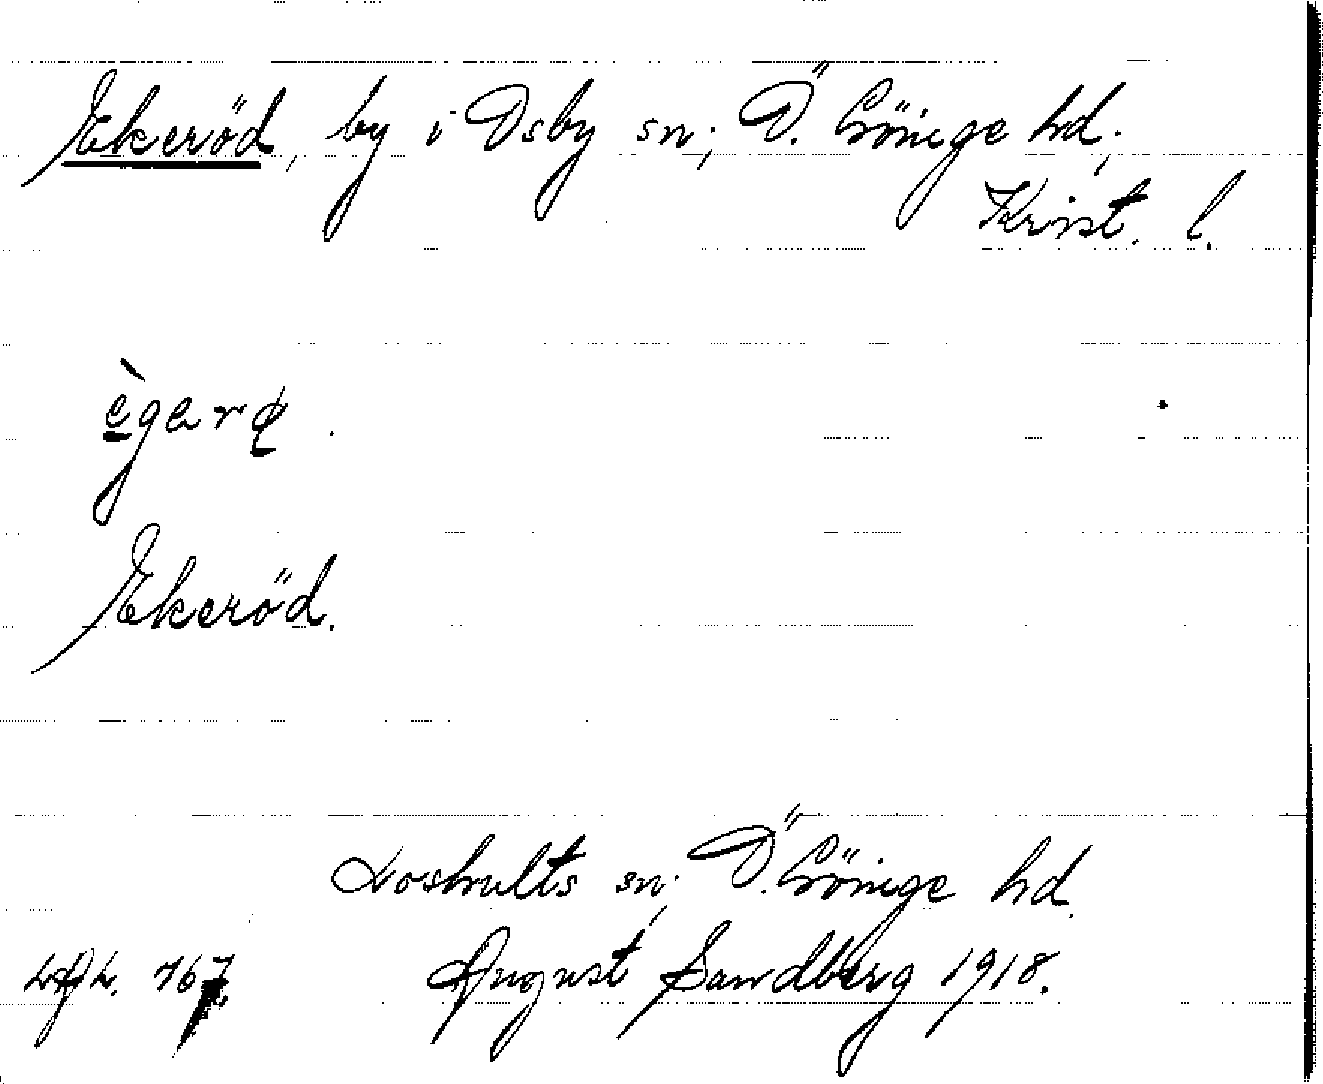 Ekeröd, by i Osby sn; Ö. Göinge hd,
Krist. l.
Ekeröd.
Loshults sn, Ö. Göinge hd.
767 August Sandberg 1918.